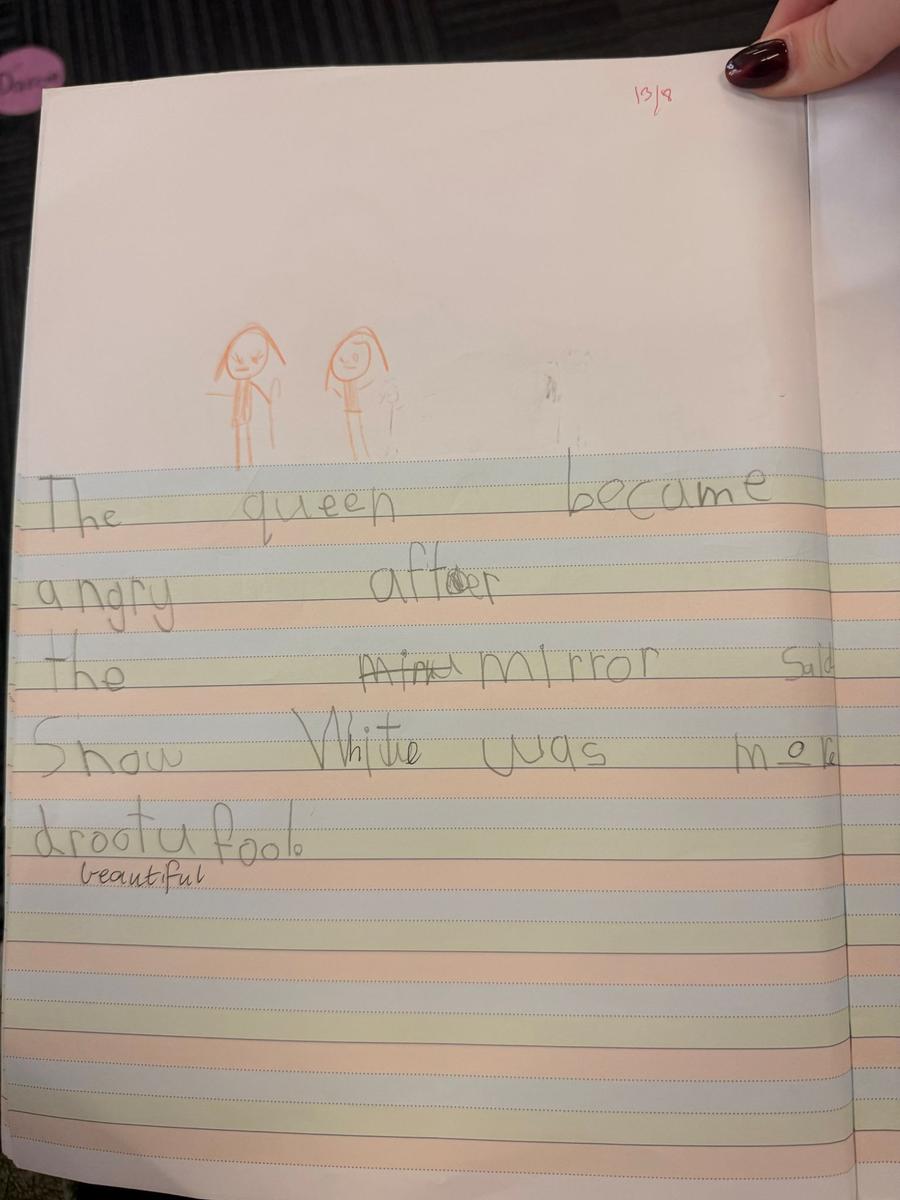 13/8
The queen became
angry after
the mirror said
Snow White was more
drootufool.
beautiful